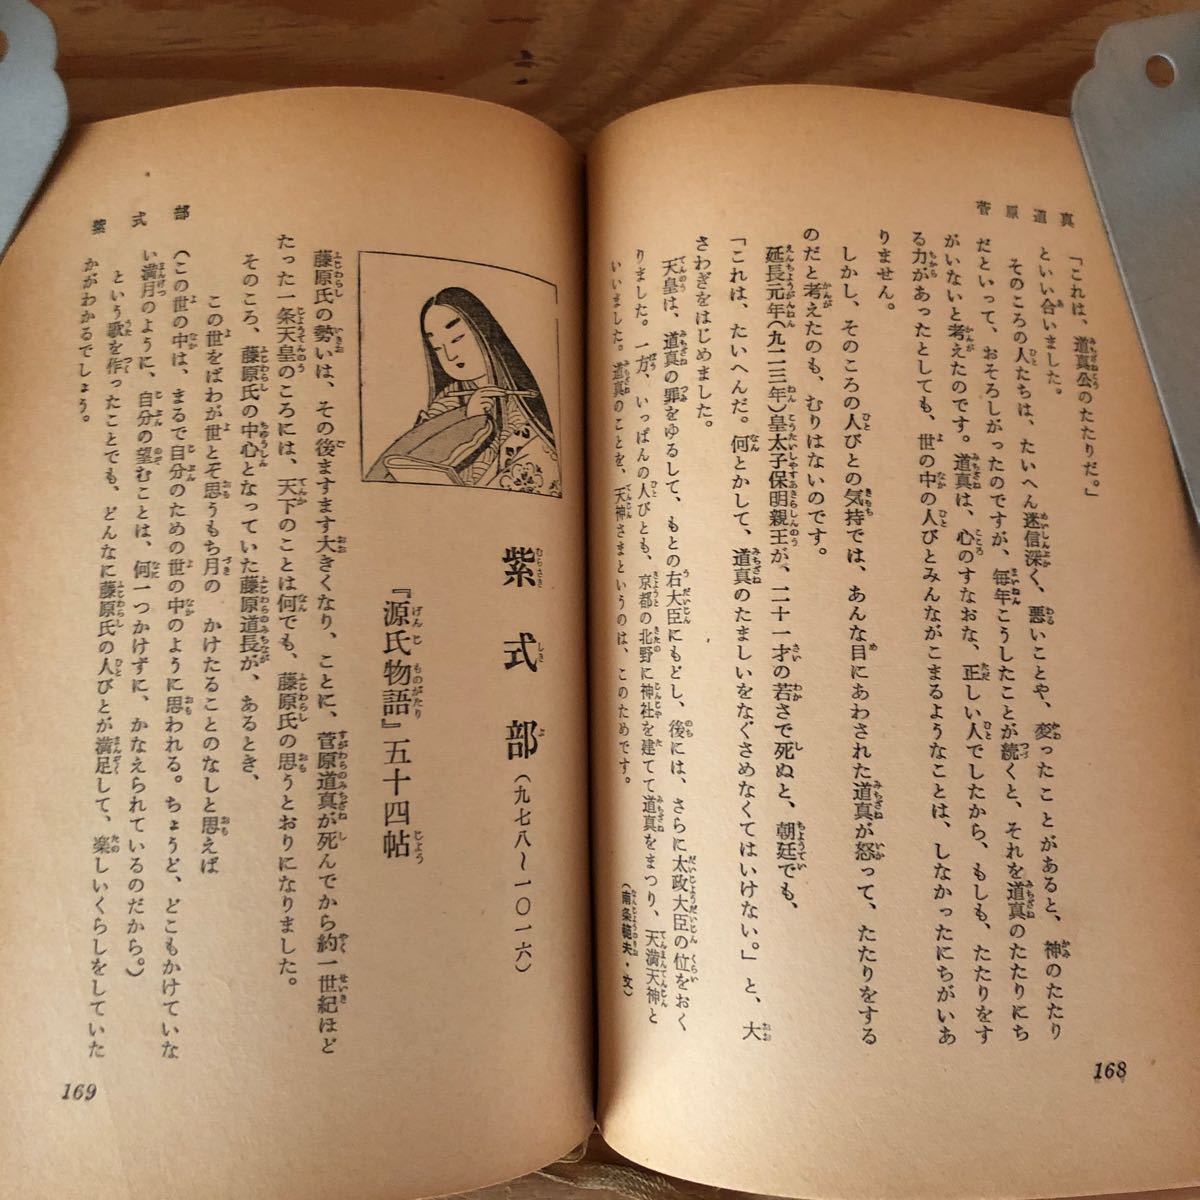 菅原道真
「これは、道真公のたたりだ。」
といい合いました。
そのころの人たちは、たいへん迷信深く、悪いことや、変ったことがあると、神のたたり
だといって、おそろしがったのですが、毎年こうしたことが続くと、それを道真のたたりにち
がいないと考えたのです。道真は、心のすなおな、正しい人でしたから、もしも、たたりをす
る力があったとしても、世の中の人びとみんながこまるようなことは、しなかったにちがいあ
りません。
しかし、そのころの人びとの気持では、あんな目にあわされた道真が怒って、たたりをする
のだと考えたのも、むりはないのです。
延長元年(九二三年)皇太子保明親王が、二十一才の若さで死ぬと、朝廷でも、
「これは、たいへんだ。何とかして、道真のたましいをなぐさめなくてはいけない。」と、大
さわぎをはじめました。
天皇は、道真の罪をゆるして、もとの右大臣にもどし、後には、さらに太政大臣の位をおく
りました。一方、いっぱんの人びとも、京都の北野に神社を建てて道真をまつり、天満天神と
いいました。道真のことを、天神さまというのは、このためです。
(南条範夫・文)
168
紫式部
紫式部(九七八〜一〇一六)
『源氏物語』五十四帖
藤原氏の勢いは、その後ますます大きくなり、ことに、菅原道真が死んでから約一世紀ほど
たった一条天皇のころには、天下のことは何でも、藤原氏の思うとおりになりました。
そのころ、藤原氏の中心となっていた藤原道長が、あるとき、
この世をばわが世とぞ思うもち月の かけたることのなしと思えば
(この世の中は、まるで自分のための世の中のように思われる。ちょうど、どこもかけていな
い満月のように、自分の望むことは、何一つかけずに、かなえられているのだから。)
という歌を作ったことでも、どんなに藤原氏の人びとが満足して、楽しいくらしをしていた
かがわかるでしょう。
169